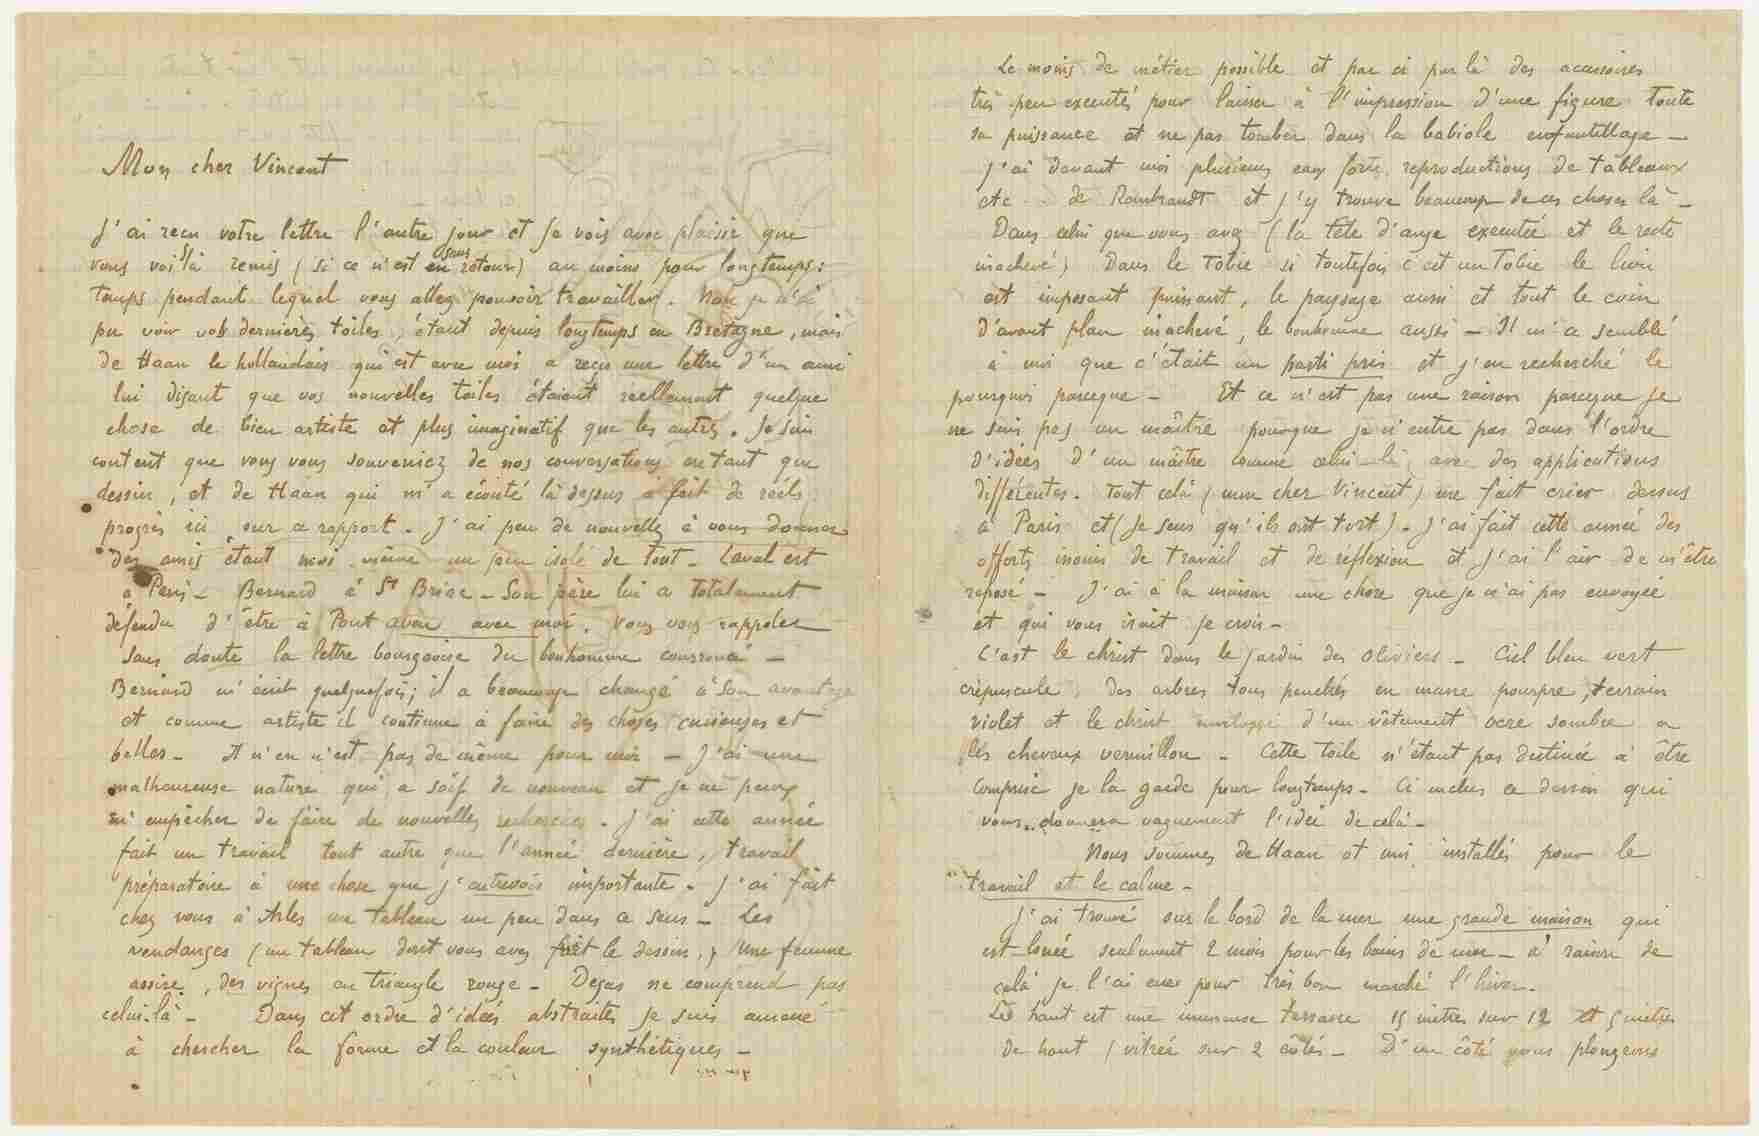 Mon cher Vincent
J'ai reçu votre lettre l'autre jour et je vois avec plaisir que
vous voilà remis (si ce n'est sans retour) au moins pour longtemps:
temps pendant lequel vous allez pouvoir travailler. Non je n'ai
pu voir vos dernières toiles, étant depuis longtemps en Bretagne, mais
de Haan le hollandais qui est avec moi a reçu une lettre d'un ami
lui disant que vos nouvelles toiles étaient réellement quelque
chose de bien artiste et plus imaginatif que les autres. Je suis
content que vous vous souveniez de nos conversations en tant que
dessin, et de Haan qui m'a écouté là dessus a fait de réels
progrès ici sur ce rapport. J'ai peu de nouvelles à vous donner
des amis étant moi même un peu isolé de tout - Laval est
à Paris - Bernard à St Briac - Son père lui a totalement
défendu d'être à Pont aven avec moi. Vous vous rappelez
sans doute la lettre bourgeoise du bonhomme courroucé -
Bernard m'écrit quelquefois; il a beaucoup changé à son avantage
et comme artiste il continue à faire des choses curieuses et
belles - Il n'en n'est pas de même pour moi - J'ai une
malheureuse nature qui a soif de nouveau et je ne peux
m'empêcher de faire de nouvelles recherches. J'ai cette année
fait un travail tout autre que l'année dernière, travail
préparatoire à une chose que j'entrevois importante. J'ai fait
chez vous à Arles un tableau un peu dans ce sens - Les
vendanges (un tableau dont vous avez fait le dessin,) Une femme
assise, des vignes en triangle rouge - Degas ne comprend pas
celui-là - Dans cet ordre d'idées abstraites je suis amené
à chercher la forme et la couleur synthétiques -
Le moins de métier possible et par ci par là des accessoires
très peu executés pour laisser à l'impression d'une figure toute
sa puissance et ne pas tomber dans la babiole enfantillage -
J'ai devant moi plusieurs eaux fortes, reproductions de tableaux
etc... de Rembrandt et j'y trouve beaucoup de ces choses là -
Dans celui que vous avez (la tête d'ange executée et le reste
inachevé) Dans le Tobie si toutefois c'est un Tobie le lion
est imposant puissant, le paysage aussi et tout le coin
d'avant plan inachevé, le bonhomme aussi - Il m'a semblé
à moi que c'était un parti pris et j'en recherché le
pourquoi parceque - Et ce n'est pas une raison parceque je
ne suis pas un maître pourque je n'entre pas dans l'ordre
d'idées d'un maître comme celui-là, avec des applications
différentes. Tout celà (mon cher Vincent) me fait crier dessus
à Paris et (je sens qu'ils ont tort). J'ai fait cette année des
efforts inouis de travail et de réflexion et j'ai l'air de m'être
reposé - J'ai à la maison une chose que je n'ai pas envoyée
et qui vous irait je crois -
C'est le christ dans le jardin des oliviers - Ciel bleu vert
crépuscule, des arbres tous penchés en masse pourpre, terrain
violet et le christ enveloppé d'un vêtement ocre sombre a
les cheveux vermillon - Cette toile n'étant pas destinée à être
comprise je la garde pour longtemps - Ci inclus ce dessin qui
vous donnera vaguement l'idée de celà -
Nous sommes de Haan et moi installés pour le
travail et le calme -
J'ai trouvé sur le bord de la mer une grande maison qui
est louée seulement 2 mois pour les bains de mer - à raison de
celà je l'ai eue pour très bon marché l'hiver.
Le haut est une immense terrasse 15 mètres sur 12 et 5 mètres
de haut (vitrée sur 2 côtés - D'un côté nous plongeons